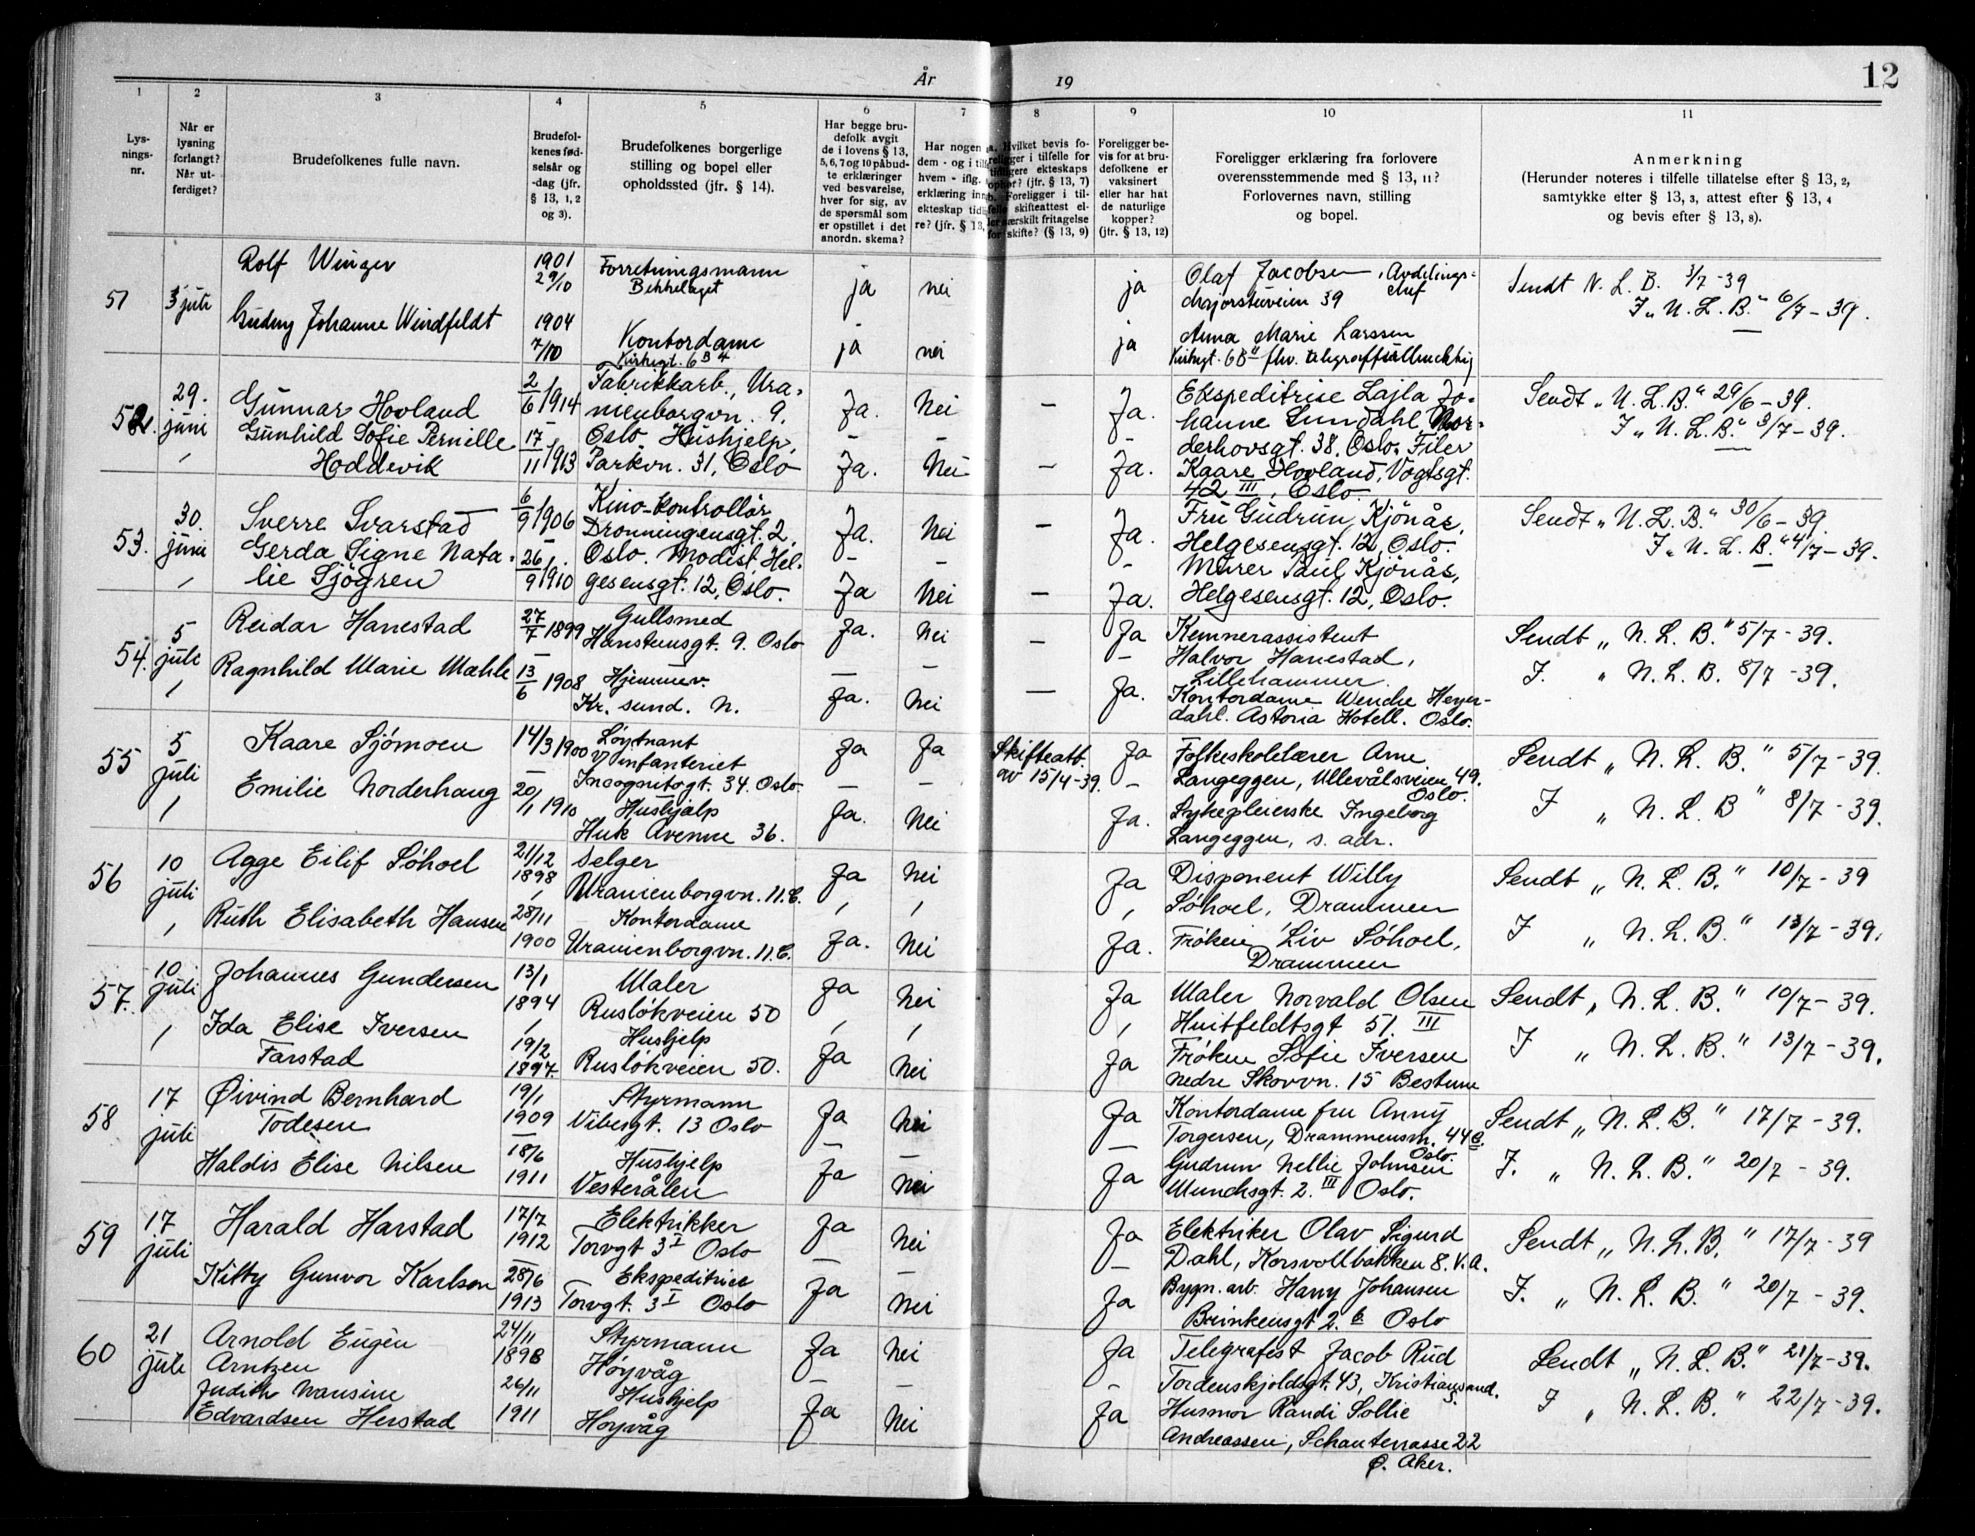 År 19
12
1 2 3 4 5 6 7 8 9 10 11
Lys-
nings-
nr.
Når er
lysning
forlangt?
Når ut-
ferdiget?
Brudefolkenes fulle navn.
Brudefol-
kenes fød-
selsår og
-dag (jfr.
§ 13, 1, 2
og 3).
Brudefolkenes borgerlige
stilling og bopel eller
opholdssted (jfr. § 14).
Har begge bru-
defolk avgit
de i lovens § 13,
5, 6, 7 og 10 påbud-
te erklæringer
ved besvarelse,
hver for sig, av
de spørsmål som
er opstillet i det
anordn. skema?
Har nogen
dem - og i til
hvem - iflg.
erklæring inn
ekteskap tid
re? (jfr. § 13,
a. Hvilket bevis fo-
religger i tilfelle for
tidligere ekteskaps
ophør? (jfr. § 13, 7)
b. Foreligger i til-
felle skifteattest el-
ler særskilt fritagelse
for skifte? (§ 13, 9)
Foreligger be-
vis for at bru-
defolkene er
vaksinert
eller har hat
de naturlige
kopper?
(jfr. § 13, 12)
Foreligger erklæring fra forlovere
overensstemmende med § 13, 11?
Forlovernes navn, stilling
og bopel.
Anmerkning
(Herunder noteres i tilfelle tillatelse efter § 13, 2,
samtykke efter § 13, 3, attest efter § 13, 4
og bevis efter § 13, 8).
51 3 juli
Rolf Winger
1901
29/10
Forretningsmann
Bekkelaget
ja nei ja
Olaf Jacobsen, Avdelings-
Majorstuveien 39 chef
Sendt N. L. B. 3/7-39
I „N. L. B." 6/7-39.
Gudny Johanne Windfeldt
1904
7/10
Kontordame
Kirkegt. 6B 4
ja nei ja
Anna Marie Larssen
Kirkegt. 6B
52. 29. juni
Gunnar Hovland
2/6 1914
Fabrikkarb., Ura-
nienborgvn. 9,
Ja. Nei – Ja.
Ekspeditrise Lajla Jo-
hanne Lundahl, Nor-
derhovsgt. 38, Oslo. Filer
Sendt „N. L. B." 29/6-39.
I „N. L. B." 3/7-39.
Gunhild Sofie Pernille
Hoddevik
17/11 1913
Oslo. Hushjelp,
Parkvn. 31, Oslo
Ja. Nei – Ja.
Kaare Hovland, Vogtsgt.
42 III, Oslo.
53. 30. juni
Sverre Svarstad
6/9 1906
Kino-kontrollør
Dronningensgt. 2,
Ja. Nei – Ja.
Fru Gudrun Kjönås,
Helgesensgt. 12, Oslo.
Sendt „N. L. B." 30/6-39.
I „N. L. B." 4/7-39.
Gerda Signe Nata-
lie Sjögren
26/9 1910
Oslo. Modist, Hel-
gesensgt. 12, Oslo.
Ja Nei – Ja.
Murer Paul Kjönås,
Helgesensgt. 12, Oslo.
54. 5 juli
Reidar Hanestad
27/7 1899
Gullsmed
Hansteensgt. 9. Oslo
Ja. Nei – Ja
Kemnerassistent
Halvor Hanestad,
Lillehammer.
Sendt „N. L. B." 5/7-39.
I. „N. L. B. 8/7-39.
Ragnhild Marie Mæhle
13/6 1908
Hjemmev.
Kr. sund. N.
Ja. Nei – Ja.
Kontordame Wenche Heyer-
dahl. Astoria Hotell. Oslo.
55 5 juli
Kaare Sjömoen
14/3 1900
Løytnant
v/ infanteriet
Incognitogt. 34. Oslo.
Ja Ja
Skifteatt.
av 15/4-39.
Ja
Folkeskolelærer Arne
Langeggen, Ullevålsveien 49.
Oslo.
Sendt „N. L. B." 5/7-39.
I „N. L. B" 8/7-39.
Emilie Norderhaug
20/1 1910
Hushjelp
Huk Avenue 36.
Ja. Nei Ja.
Sykepleierske Ingeborg
Langeggen, s. adr.
56 10 juli
Agge Eilif Söhoel
21/12
1898
Selger
Uranienborgvn. 11. C.
Ja Nei Ja
Disponent Willy
Söhoel, Drammen
Sendt „N. L. B." 10/7-39
I „N. L. B." 13/7-39.
Ruth Elisabeth Hansen
28/11
1900
Kontordame
Uranienborgvn. 11. C.
Ja. Nei Ja.
Frøken Liv Söhoel,
Drammen
57. 10 juli
Johannes Gundersen
13/1
1894
Maler
Rusløkveien 50
Ja Nei Ja
Maler Norvald Olsen
Huitfeldtsgt 51. III
Sendt „N. L. B." 10/7-39.
I „N. L. B." 13/7-39.
Ida Elise Iversen
Farstad
19/2
1897.
Hushjelp
Rusløkveien 50.
Ja Nei Ja
Frøken Sofie Iversen
nedre Skovvn. 15 Bestum
58 17 juli
Øivind Bernhard
Todesen
19/1
1909
Styrmann
Vibesgt. 13 Oslo
Ja Nei Ja
Kontordame fru Anny
Torgersen, Drammensvn. 44 C.
Oslo.
Sendt „N. L. B." 17/7-39.
I. „N. L. B." 20/7-39.
Haldis Elise Nilsen
18/6
1911
Hushjelp
Vesterålen
Ja Nei Ja
Gudrun Nellie Johnsen
Munchsgt. 2. III Oslo.
59 17 juli
Harald Harstad
17/7
1912
Elektrikker
Torvgt 3 I Oslo
Ja Nei Ja
Elektriker Olav Sigurd
Dahl, Korsvollbakken 8. V. A.
Sendt „N. L. B." 17/7-39
I. „N. L. B." 20/7-39.
Kitty Gunvor Karlsen
28/6
1913
Ekspeditrice
Torvgt. 3 I Oslo
Ja Nei Ja
Bygn. arb. Harry Johansen
Brinkensgt 2. C Oslo
60 21 juli
Arnold Eugèn
Arntzen
24/11
1898
Styrmann
Høyvåg
Ja Nei Ja
Telegrafist Jacob Rud
Tordenskjoldsgt. 43, Kristiansand.
S.
Sendt „N. L. B." 21/7-39.
I „N. L. B." 22/7-39.
Judith Nansine
Edvardsen Herstad
26/11
1911
Hushjelp
Høyvåg
Ja Nei Ja
Husmor Randi Sollie
Andreassen, Schauterrasse 22
Ø. Aker.